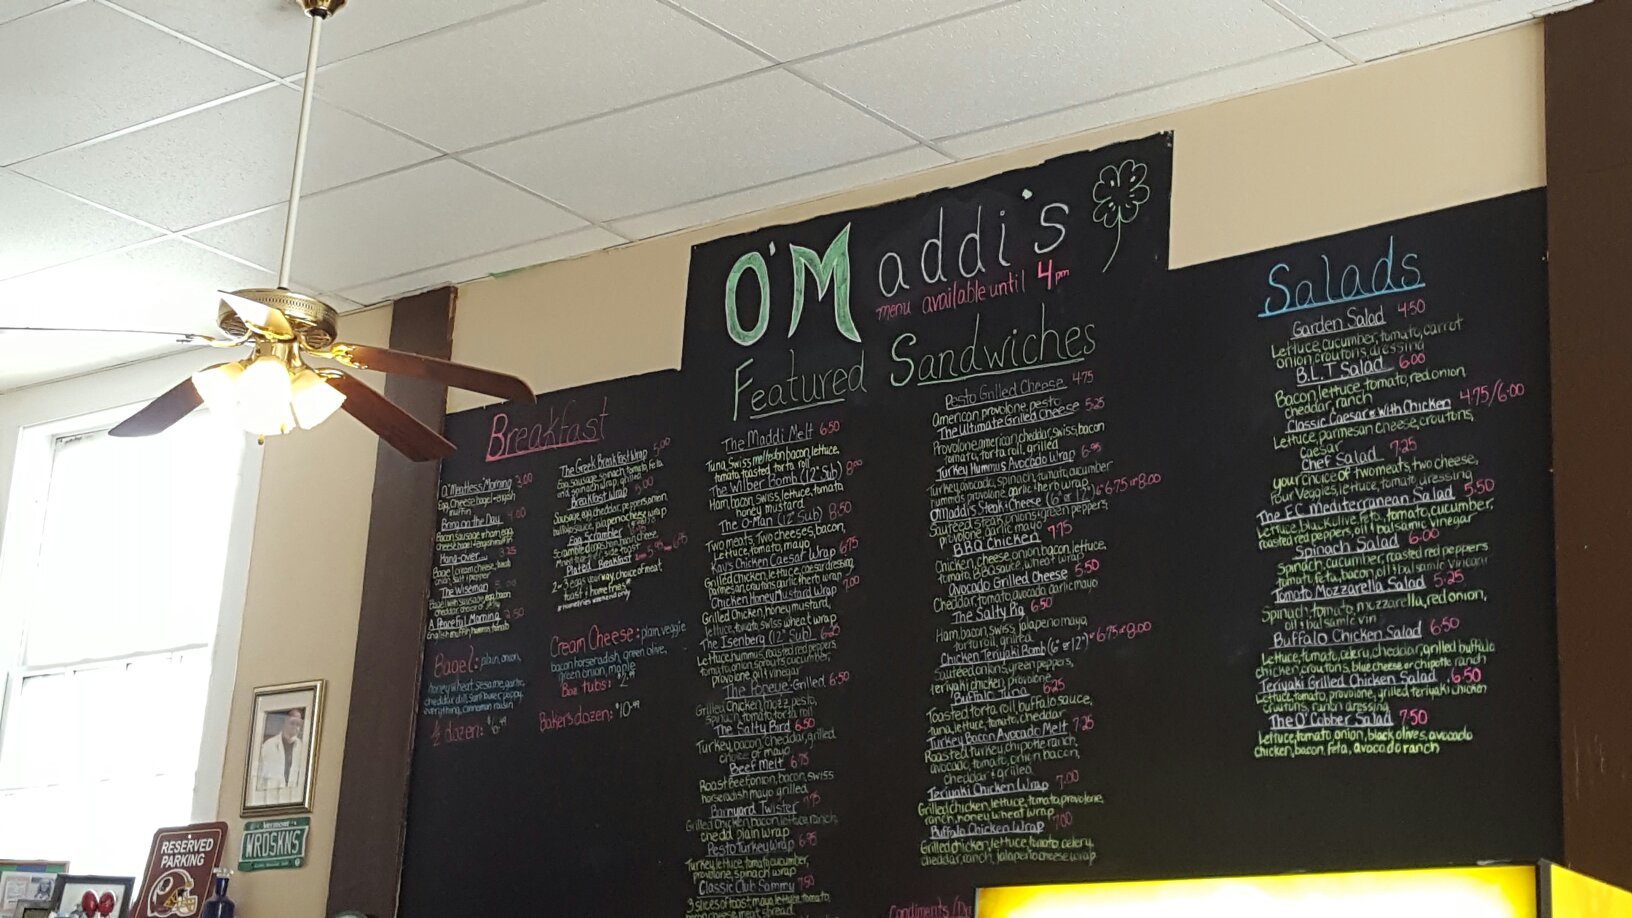 O'Maddi's
menu available until 4pm
Featured Sandwiches
Breakfast
O'Meatless Morning 3.00
Egg, Cheese, bagel or english
muffin
Bring on the Day 4.00
Bacon, sausage or ham, egg,
cheese, bagel or english muffin
Hang-over... 3.25
Bagel, cream cheese,
onion, salt & pepper
The Wiseman 5.00
Bagel with sausage, egg, bacon
cheddar,
A Peaceful Morning 2.50
English muffin, hummus, tomato
Bagel: plain, onion,
honey wheat, sesame, garlic,
cheddar dill, sunflower, poppy,
everything, cinnamon raisin
½ dozen: $6.49
The Greek Breakfast Wrap 5.00
Egg, sausage, spinach, tomato, feta
and spinach wrap, grilled
Breakfast Wrap 5.00
Sausage, egg, cheddar, peppers, onion,
buffalo sauce, jalapeno cheese wrap
Egg Scrambler
Scrambled eggs, ham, bacon, cheese,
side toast
Plated Breakfast
2-3 eggs your way, choice of meat
toast & home fries*
*homefries weekend only
Cream Cheese: plain, veggie
bacon horseradish, green olive,
green onion, maple
8oz tubs: $2.99
Bakers dozen: $10.99
The Maddi Melt 6.50
Tuna, Swiss melted on bacon, lettuce,
tomato, toasted torta roll
The Wilber Bomb (12" Sub) 8.00
Ham, bacon, swiss, lettuce, tomato
honey mustard
The O-Man (12" Sub) 8.50
Two meats, Two cheeses, bacon,
Lettuce, tomato, mayo
Kay's Chicken Caesar Wrap 6.75
Grilled chicken, lettuce, caesar dressing
parmesan, croutons, garlic herb wrap
Chicken Honey Mustard Wrap 7.00
Grilled Chicken, honey mustard,
lettuce, tomato, swiss, wheat wrap
The Isenberg (12" Sub) 6.25
Lettuce, hummus, roasted red peppers,
tomato, onion, sprouts, cucumber,
provolone, oil & vinegar
The Popeye-Grilled 6.50
Grilled Chicken, mozz, pesto,
spinach, tomato, torta roll
The Salty Bird 6.50
Turkey, bacon, cheddar, grilled
choice of mayo
Beef Melt 6.75
Roast Beef, onion, bacon, swiss
horseradish mayo, grilled
Barnyard Twister 7.75
Grilled Chicken, bacon, lettuce, ranch,
chedd, plain wrap
Pesto Turkey Wrap 6.95
Turkey, lettuce, tomato, cucumber,
provolone, spinach wrap
Classic Club Sammy 7.50
3 slices of toast, mayo, lettuce, tomato,
bacon, cheese, meat, spread
Pesto Grilled Cheese 4.75
American, provolone, pesto
The Ultimate Grilled Cheese 5.25
Provolone, american, cheddar, swiss, bacon
tomato, torta roll, grilled
Turkey Hummus Avocado Wrap 6.95
Turkey, avocado, spinach, tomato, cucumber
hummus, provolone, garlic & herb wrap
O'Maddi's Steak & Cheese (6" or 12") 6.75 or 8.00
Sauteed steak, onions, green peppers,
provolone, garlic mayo
BBQ Chicken 7.75
Chicken, cheese, onion, bacon, lettuce,
tomato, BBQ sauce, wheat wrap
Avocado Grilled Cheese 5.50
Cheddar, tomato, avocado, garlic mayo
The Salty Pig 6.50
Ham, bacon, swiss, jalapeno mayo,
torta roll, grilled
Chicken Teriyaki Bomb (6" or 12") 6.75 or 8.00
Sauteed onions, green peppers,
teriyaki chicken, provolone
Buffalo Tuna 6.25
Toasted torta roll, buffalo sauce,
tuna, lettuce, tomato, cheddar
Turkey Bacon Avocado Melt 7.25
Roasted turkey, chipotle ranch,
avocado, tomato, onion, bacon,
cheddar & grilled
Teriyaki Chicken Wrap 7.00
Grilled chicken, lettuce, tomato, provolone,
ranch, honey wheat wrap
Buffalo Chicken Wrap 7.00
Grilled chicken, lettuce, tomato, celery,
cheddar, ranch, jalapeno cheese wrap
Condiments
Salads
Garden Salad 4.50
Lettuce, cucumber, tomato, carrot
onion, croutons, dressing
B.L.T Salad 6.00
Bacon, lettuce, tomato, red onion,
cheddar, ranch
Classic Caesar or With Chicken 4.75/6.00
Lettuce, parmesan cheese, croutons,
caesar
Chef Salad 7.25
your choice of two meats, two cheese,
four Veggies, lettuce, tomato, dressing
The F.C. Mediterranean Salad 5.50
Lettuce, black olive, feta, tomato, cucumber,
roasted red peppers, oil & balsamic vinegar
Spinach Salad 6.00
Spinach, cucumber, roasted red peppers
tomato, feta, bacon, oil & balsamic vinegar
Tomato Mozzarella Salad 5.25
Spinach, tomato, mozzarella, red onion,
oil & balsamic vin
Buffalo Chicken Salad 6.50
Lettuce, tomato, celery, cheddar, grilled buffalo
chicken, croutons, blue cheese or chipotle ranch
Teriyaki Grilled Chicken Salad 6.50
Lettuce, tomato, provolone, grilled teriyaki chicken
croutons, ranch dressing
The O'Cobber Salad 7.50
Lettuce, tomato, onion, black olives, avocado
chicken, bacon, feta, avocado ranch
Vermont
WRDSKNS
RESERVED
PARKING